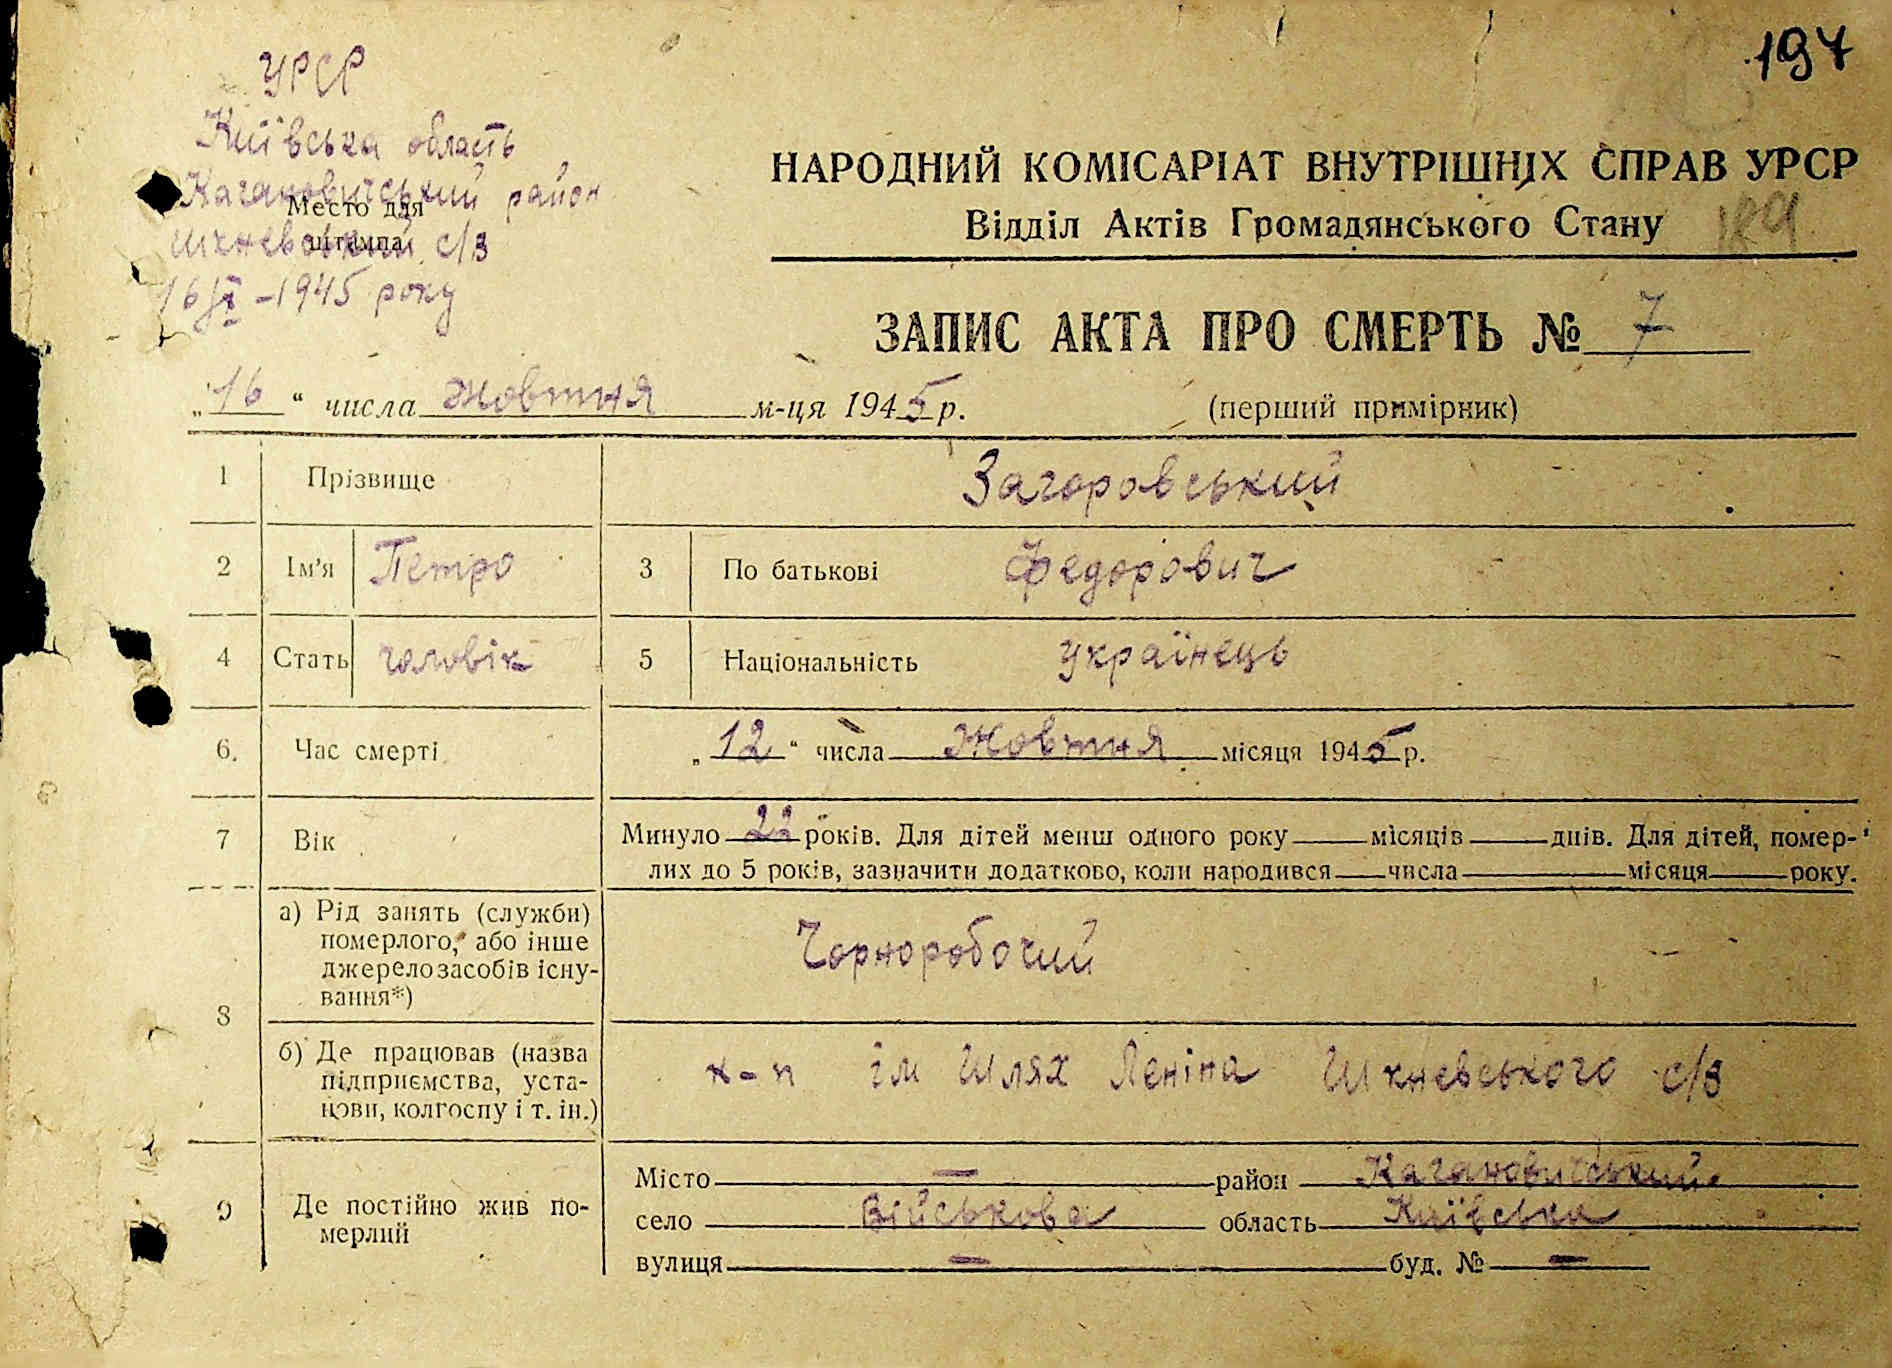 197
УРСР
Київська область
Кагановичський район
Место для
штампа
Шкневський с/в
16/X - 1945 року
НАРОДНИЙ КОМІСАРІАТ ВНУТРІШНІХ СПРАВ УРСР
Відділ Актів Громадянського Стану
189
ЗАПИС АКТА ПРО СМЕРТЬ № 7
„16“ числа Жовтня м-ця 1945 р.
(перший примірник)
1 Прізвище Загоровський
2 Ім'я Петро 3 По батькові Федорович
4 Стать чоловік 5 Національність українець
6. Час смерті „12“ числа Жовтня місяця 1945 р.
7 Вік Минуло 22 років. Для дітей менш одного року місяців днів. Для дітей, помер-
лих до 5 років, зазначити додатково, коли народився числа місяця року.
8
а) Рід занять (служби)
померлого, або інше
джерело засобів існу-
вання*)
Чорноробочий
б) Де працював (назва
підприємства, уста-
нови, колгоспу і т. ін.)
к-п ім Шлях Леніна Шкневського с/в
9 Де постійно жив по-
мерлий
Місто — район Кагановичський
село Військова область Київська
вулиця — буд. № —